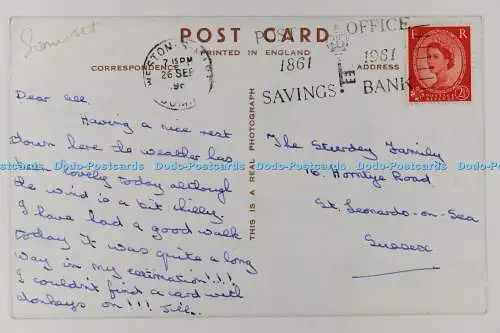 Somerset
POST CARD
PRINTED IN ENGLAND
CORRESPONDENCE
ADDRESS
7 15 PM
26 SEP
POST OFFICE
1861 1961
SAVINGS BANK
E R
2½D
THIS IS A REAL PHOTOGRAPH
Dear all,
Having a nice rest
down here the weather has
been lovely today although
the wind is a bit chilly.
I have had a good walk
today It was quite a long
way in my estimation!!!
I couldn't find a card with
donkeys on!!! Jill.
The Sturdey Family
16, Horntye Road,
St. Leonards-on-Sea
Sussex
Dodo-Postcards Dodo-Postcards Dodo-Postcards Dodo-Postcards